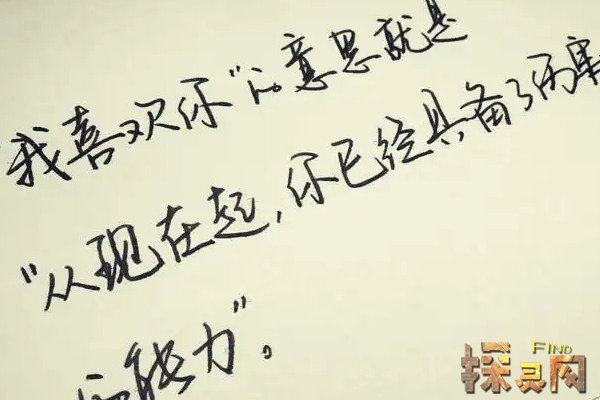 我喜欢你"的意思就是
"从现在起,你已经具备了伤害
的能力"。
FIND
探灵网